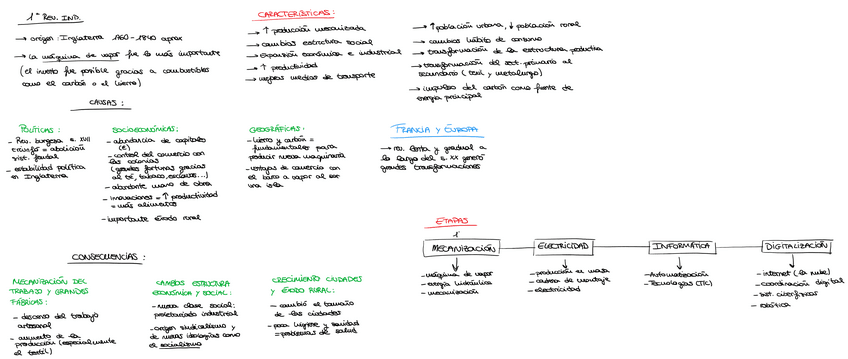 1ª REV. IND.
→ origen: Inglaterra 1760-1840 aprox
→ La máquina de vapor fue lo más importante
(el invento fue posible gracias a combustibles
como el carbón o el hierro)
CARACTERÍSTICAS:
→ ↑ producción mecanizada
→ cambios estructura social
→ expansión económica e industrial
→ ↑ productividad
→ mejores medios de transporte
→ ↑ población urbana, ↓ población rural
→ cambios hábito de consumo
→ transformación de la estructura productiva
→ transformación del sect. primario al
secundario (textil y metalurgia)
→ impulso del carbón como fuente de
energía principal
CAUSAS:
POLÍTICAS:
- Rev. burguesa s. XVII
triunfó = abolición
sist. feudal
- estabilidad política
en Inglaterra
SOCIOECONÓMICAS:
- abundancia de capitales
(€)
- control del comercio con
las colonias
(grandes fortunas gracias
al té, tabaco, esclavos...)
- abundante mano de obra
- innovaciones = ↑ productividad
= más alimentos
- importante éxodo rural
GEOGRÁFICAS:
- hierro y carbón =
fundamentales para
producir nueva maquinaria
- ventajas de comercio con
el barco a vapor al ser
una isla
FRANCIA Y EUROPA
→ rev. lenta y gradual a
lo largo del s. XX generó
grandes transformaciones
CONSECUENCIAS:
MECANIZACIÓN DEL
TRABAJO Y GRANDES
FÁBRICAS:
- descenso del trabajo
artesanal
- aumento de la
producción (especialmente
el textil)
CAMBIOS ESTRUCTURA
ECONÓMICA Y SOCIAL:
- nueva clase social:
proletariado industrial
- origen sindicalismo y
de nuevas ideologías como
el socialismo
CRECIMIENTO CIUDADES
Y ÉXODO RURAL:
- cambió el tamaño
de las ciudades
- poca higiene y sanidad
= problemas de salud
ETAPAS
1ª
MECANIZACIÓN
- máquina de vapor
- energía hidráulica
- mecanización
ELECTRICIDAD
- producción en masa
- cadena de montaje
- electricidad
INFORMÁTICA
- Automatización
- Tecnologías (TIC)
DIGITALIZACIÓN
- internet (la nube)
- coordinación digital
- sist. ciberfísicos
- robótica